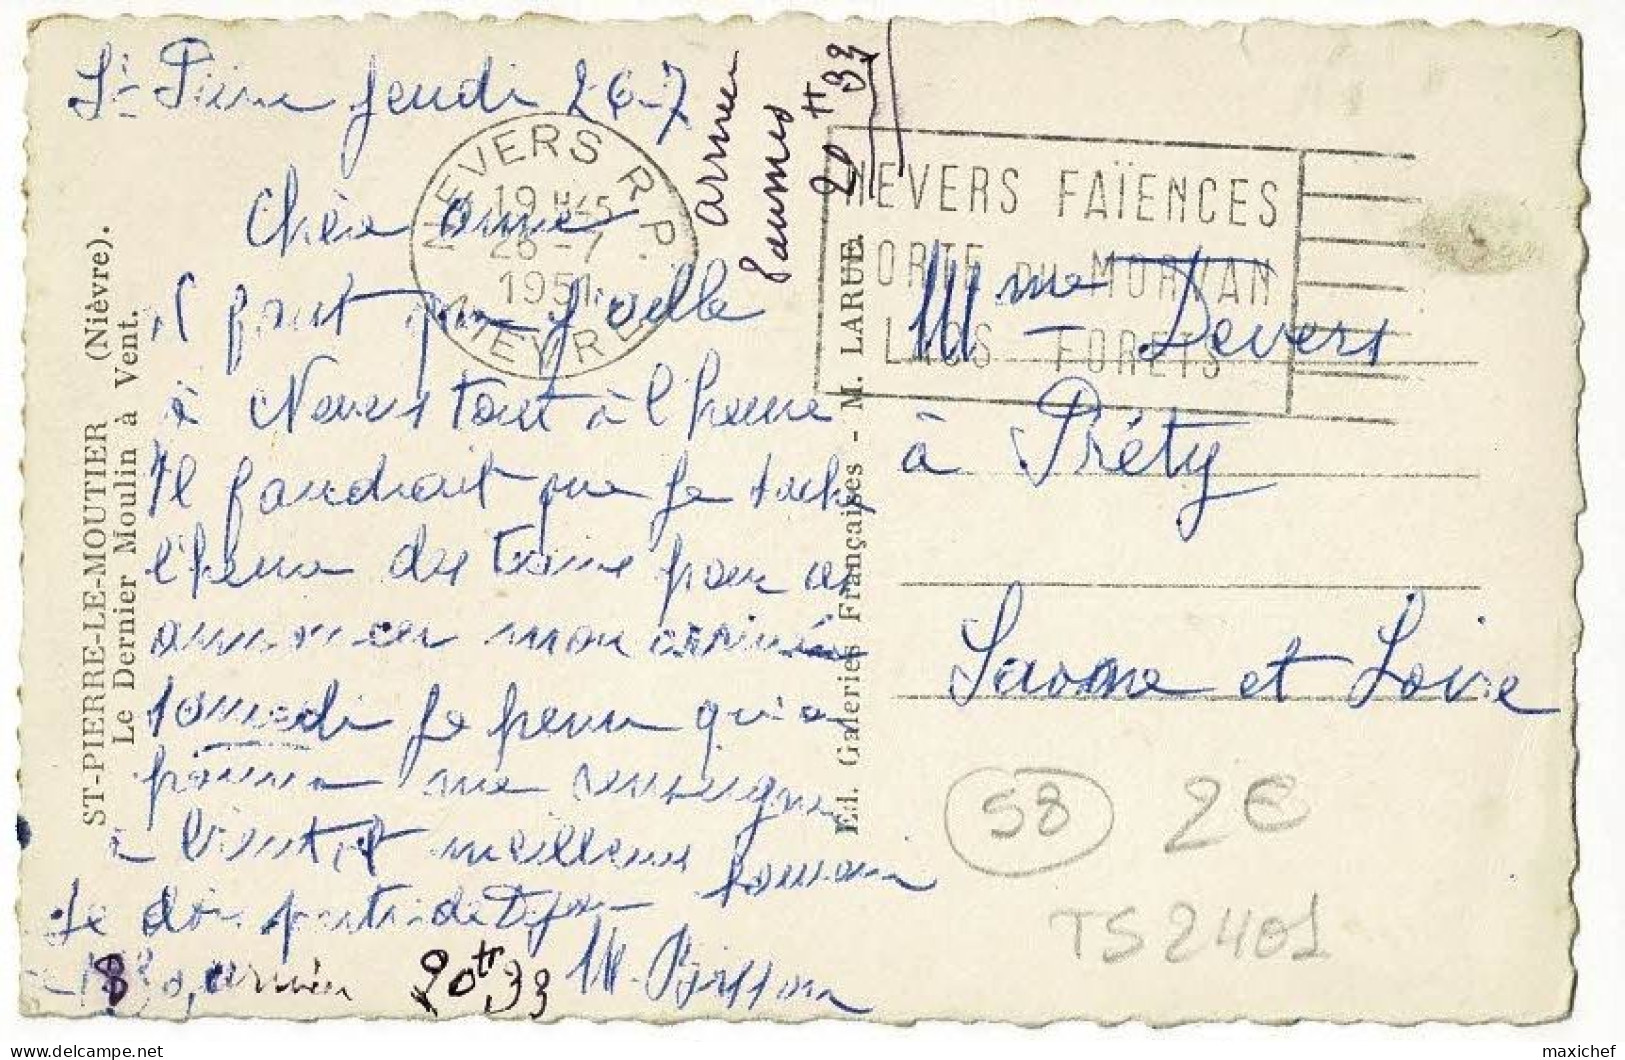 St Pierre jeudi 26-7
Chère amie
il faut que Joelle
à Nevers tout à l'heure
Il faudrait que je sache
l'heure des trains pour
annoncer mon arrivée
samedi Je pense qu'on
pourra me renseigner
à bientôt meilleurs
Je dois partir
arrivée 20H 33
arrivée
20 H 33
NEVERS R.P.
19 H 45
26 -7
1951
NIEVRE
NEVERS FAÏENCES
PORTE DU MORVAN
LACS FORETS
Mme Devers
à Préty
Saone et Loire
ST-PIERRE-LE-MOUTIER (Nièvre).
Le Dernier Moulin à Vent.
Ed. Galeries Françaises - M. LARUE.
58
2€
TS2401
delcampe.net
maxichef